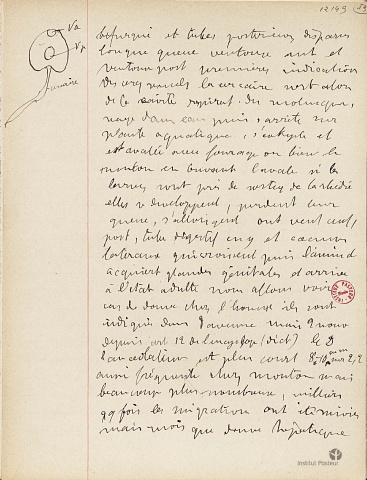 12149
Va
Vp
bifurqué et tubes postérieurs disparus
longue queue ventouse ant et
ventouse post premières indications
des cœcums la cercaire sort alors
de la cavité respirat. des mollusques,
nage dans eau puis s'arrête sur
plante aquatique, s'enkyste et
est avalée avec fourrage ou bien le
mouton en buvant l'avale si les
larves sont près de
elles se développent, perdent leur
queue, s'allongent ont vent ant,
post, tube digestif en y et cœcums
latéraux puis l'animal
acquiert glandes génitales et arrive
à l'état adulte nous allons voir
cas de douve chez l'homme ils sont
indiqués dans Davaine mais 9 nouv
depuis art 12 de (dict) le D
lanceolatum est plus court 8-10 mm sur 2,2
aussi fréquente chez mouton mais
beaucoup plus nombreux, milliers
qq fois les migrations ont été suivies
mais moins que douve hépatique
INSTITUT PASTEUR
Institut Pasteur